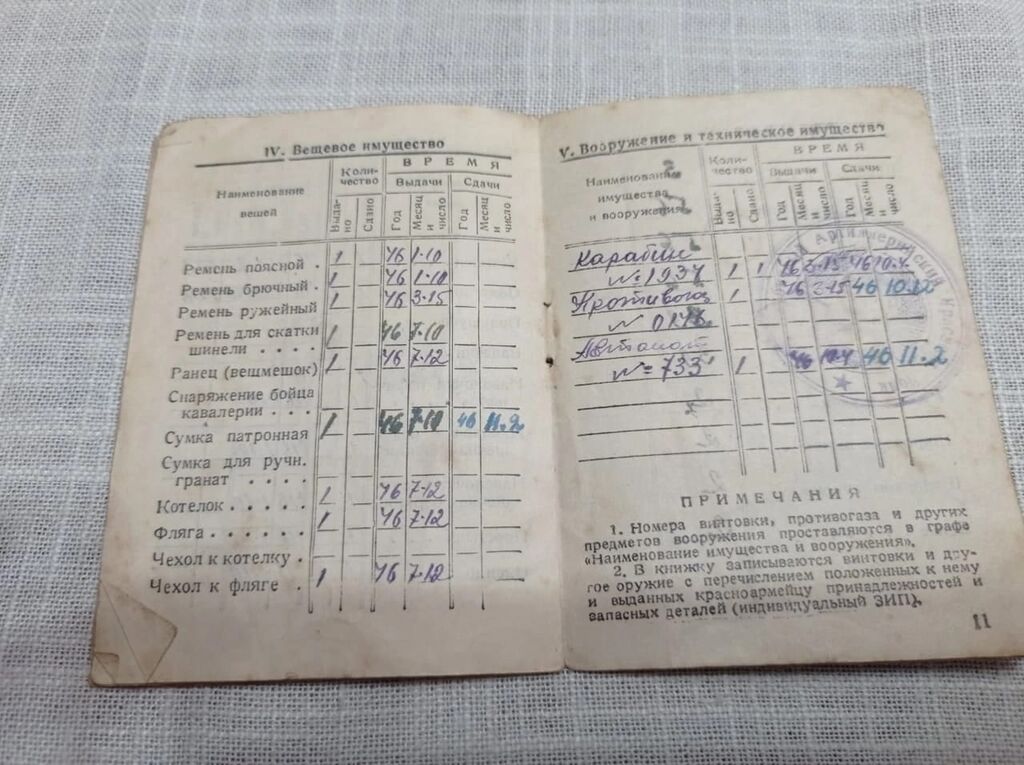 IV. Вещевое имущество
Наименование вещей
Количество
ВРЕМЯ
Выдачи
Сдачи
Выдано
Сдано
Год
Месяц и число
Год
Месяц и число
Ремень поясной . 1 46 1-10
Ремень брючный . 1 46 1-10
Ремень ружейный 1 46 3-15
Ремень для скатки
шинели . . . . 1 46 7-10
Ранец (вещмешок) 1 46 7-12
Снаряжение бойца
кавалерии . . . .
Сумка патронная 1 46 7-10 46 11.2
Сумка для ручн.
гранат . . . .
Котелок . . . . . 1 46 7-12
Фляга . . . . . . 1 46 7-12
Чехол к котелку .
Чехол к фляге . 1 46 7-12
V. Вооружение и техническое имущество
Наименование
имущества
и вооружения
Количество
ВРЕМЯ
Выдачи
Сдачи
Выдано
Сдано
Год
Месяц и число
Год
Месяц и число
Карабин
№ 1937 1 1 46 3-15 46 10.4
Противогаз 1 46 46 10.12
№
Автомат
№ 733 1 46 10.4 46 11.2
Артиллерийский
ПРИМЕЧАНИЯ
1. Номера винтовки, противогаза и других
предметов вооружения проставляются в графе
«Наименование имущества и вооружения».
2. В книжку записываются винтовки и дру-
гое оружие с перечислением положенных к нему
и выданных красноармейцу принадлежностей и
запасных деталей (индивидуальный ЗИП).
11